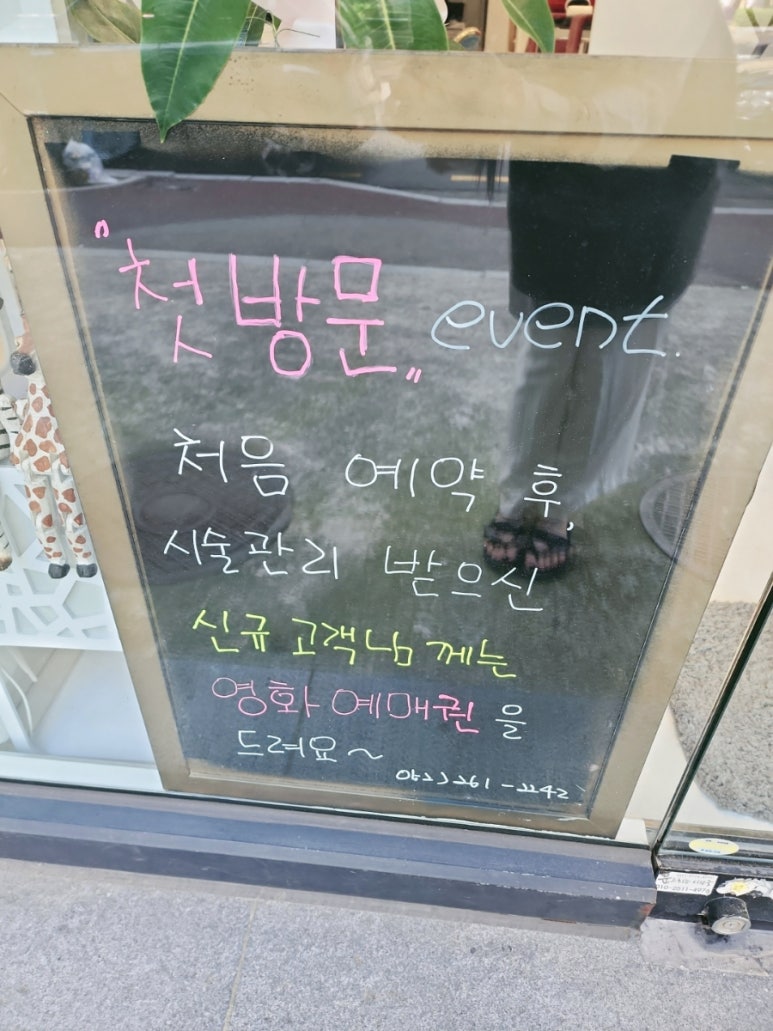 "첫방문" event.
처음 예약 후,
시술관리 받으신
신규 고객님께는
영화 예매권을
드려요~
052) 261-2242